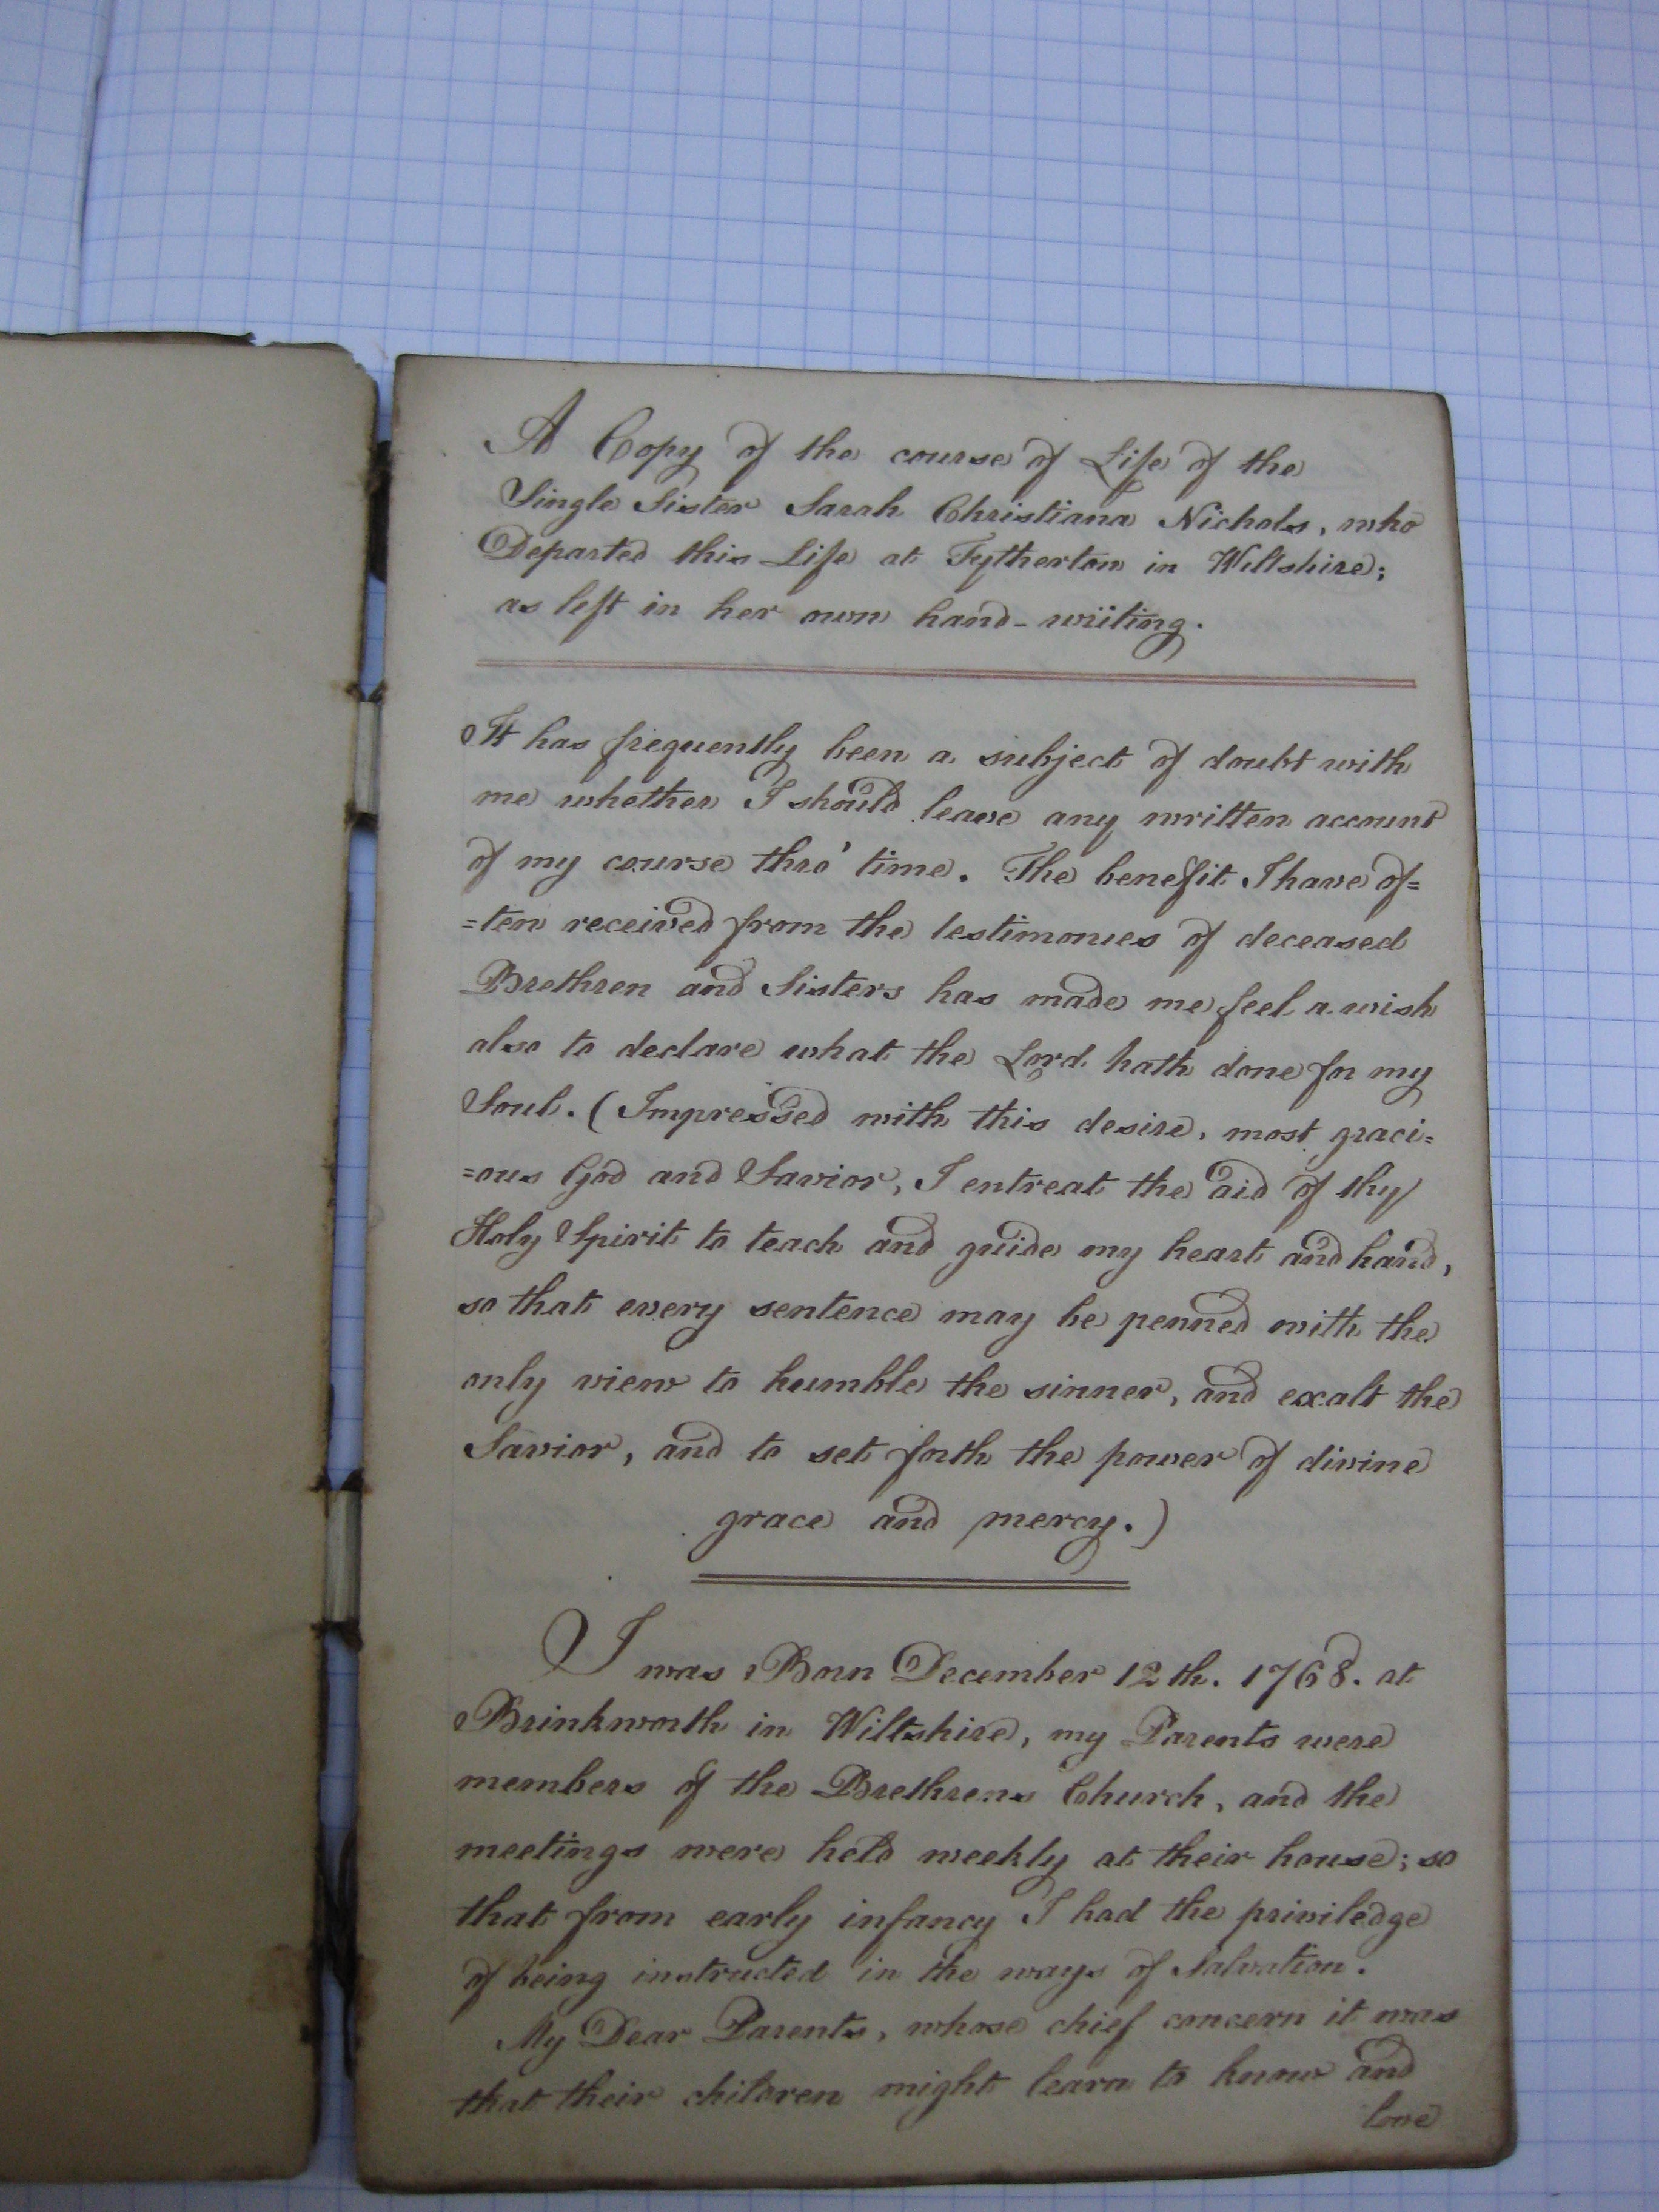 A Copy of the course of Life of the
Single Sister Sarah Christiana Nichols, who
Departed this Life at Tytherton in Wiltshire;
as left in her own hand-writing.
It has frequently been a subject of doubt with
me whether I should leave any written account
of my course thro' time. The benefit I have of=
=ten received from the testimonies of deceased
Brethren and Sisters has made me feel a wish
also to declare what the Lord hath done for my
Soul. (Impressed with this desire, most graci=
=ous God and Savior, I entreat the aid of thy
Holy Spirit to teach and guide my heart and hand,
so that every sentence may be penned with the
only view to humble the sinner, and exalt the
Savior, and to set forth the power of divine
grace and mercy.)
I was Born December 12th. 1768. at
Brinkworth in Wiltshire, my Parents were
members of the Brethrens Church, and the
meetings were held weekly at their house; so
that from early infancy I had the priviledge
of being instructed in the ways of Salvation.
My Dear Parents, whose chief concern it was
that their children might learn to know and
love